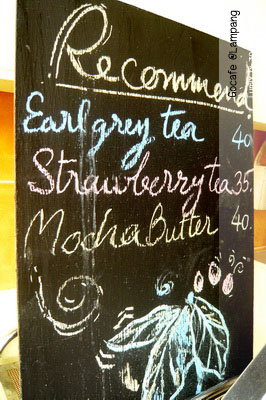 Recommend
Earl grey tea 40
Strawberry tea 35.
Mocha Butter 40.
6ocafe @Lampang